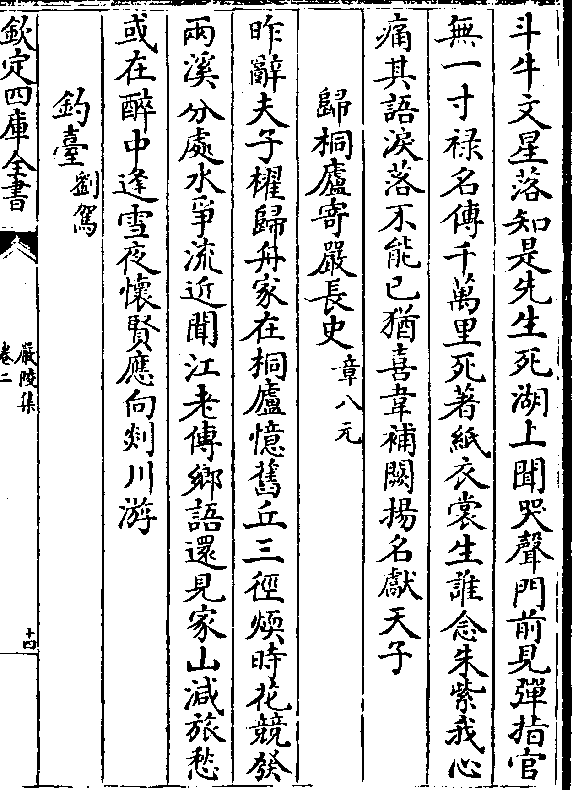 斗牛文星落知是先生死湖上聞哭聲門前見彈指官
無一寸禄名傳千萬里死著紙衣裳生誰念朱紫我心
痛其語淚落不能已猶喜韋補闕揚名獻天子
歸桐廬寄嚴長史 章八元
昨辭夫子櫂歸舟家在桐廬憶舊丘三徑煗時花競發
兩溪分處水爭流近聞江老傳鄉語還見家山減旅愁
或在醉中逢雪夜懷賢應向剡川游
釣臺 劉駕
欽定四庫全書
嚴陵集
卷二
十四